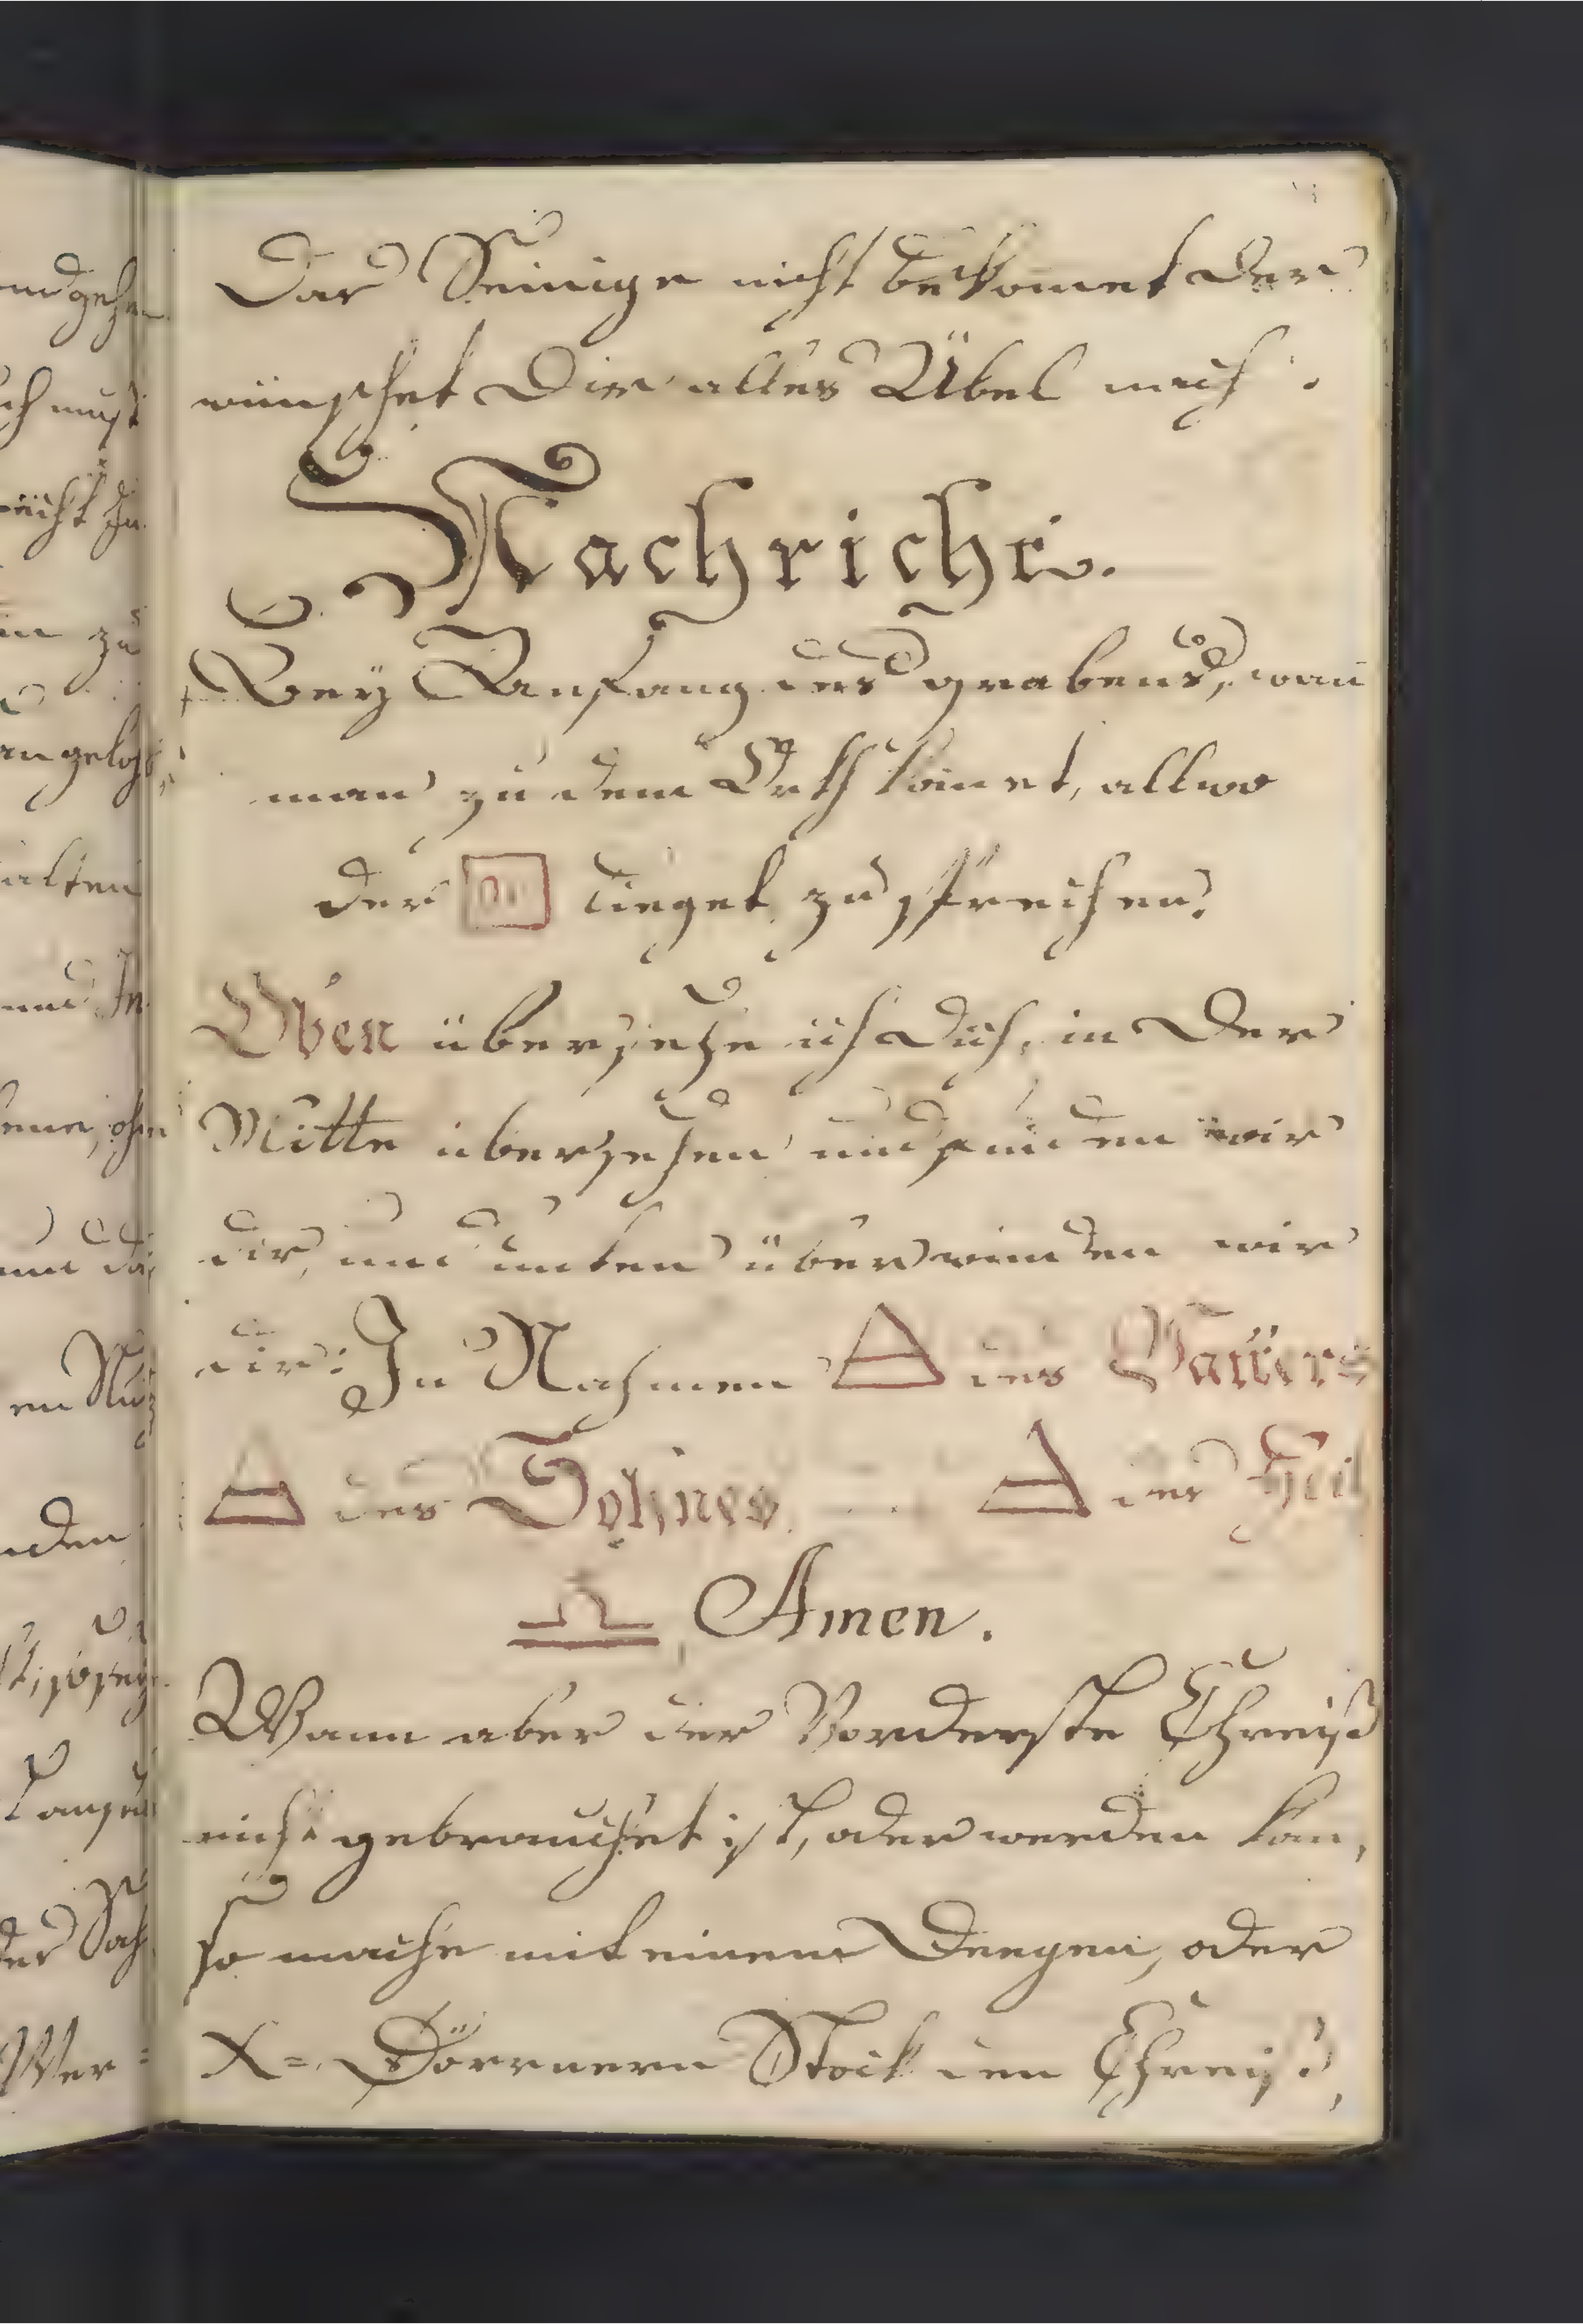 Das Seinige nicht bekomet der
wünschet Dir alles Übel nach.
Nachricht.
Bey Anfang des grabens, wan
man zu dem Orth komet, allwo
der lieget zu sprechen.
Oben übersetze ich dich, in der
Mitte übersehen und finden wir
dir, und unten überwinden wir
dir: In Nahmen △ des Vatters
△ des Sohnes △ des Heil
♎ Amen.
Wann aber der Vorderste Chreiß
nicht gebrauchet ist, oder werden kan,
so mache mit einem Deegen, oder
X=Dörrnern Stock den Chreiß,